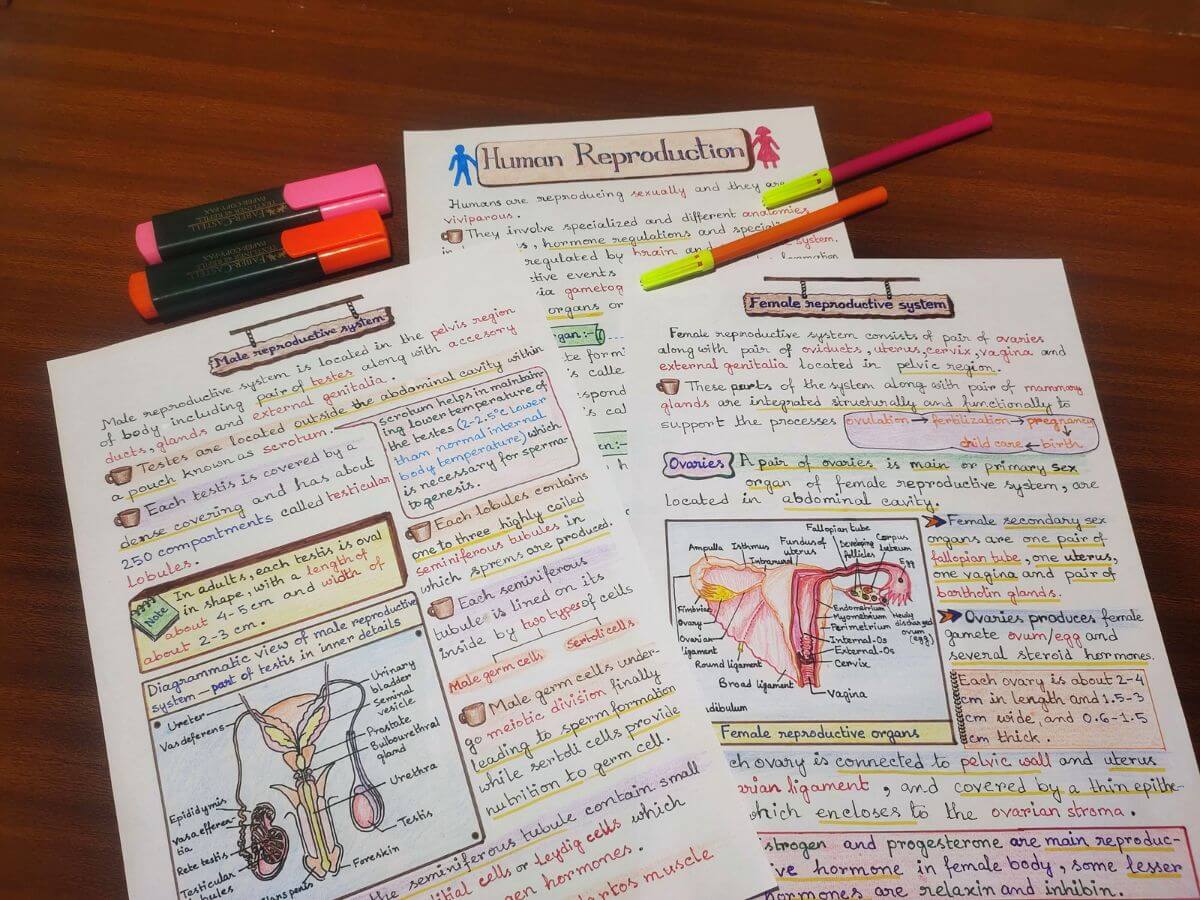 FABER-CASTELL
FABER-CASTELL
Human Reproduction
Humans are reproducing sexually and they are
viviparous.
They involve specialized and different anatomies
, hormone regulations and
regulated by brain and system.
events
gametog
organs or
gan:-
Male reproductive system
Male reproductive system is located in the pelvis region
of body including pair of testes along with accesory
ducts, glands and external genitalia.
Testes are located outside the abdominal cavity within
a pouch known as scrotum.
scrotum helps in maintain-
ing lower temperature of
the testes (2-2.5°c lower
than normal internal
body temperature) which
is necessary for sperma-
togenesis.
Each testis is covered by a
dense covering and has about
250 compartments called testicular
lobules.
Note
In adults, each testis is oval
in shape, with a length of
about 4-5 cm and width of
about 2-3 cm.
Each lobules contains
one to three highly coiled
seminiferous tubules in
which sprems are produced.
Each seminiferous
tubule is lined on its
inside by two types of cells
Male germ cells
Sertoli cells
Male germ cells under-
go meiotic division finally
leading to sperm formation
while sertoli cells provide
nutrition to germ cell.
Diagrammatic view of male reproductive
system — part of testis in inner details
Ureter
Vas deferens
Epididymis
vasa efferen-
tia
Rete testis
Testicular
lobules
Glans penis
Urinary
bladder
Seminal
vesicle
Prostate
Bulbourethral
gland
Urethra
Testis
Foreskin
the seminiferous tubule contain small
cells or leydig cells which
gen hormones.
artos muscle
Female reproductive system
Female reproductive system consists of pair of ovaries
along with pair of oviducts, uterus, cervix, vagina and
external genitalia located in pelvic region.
These parts of the system along with pair of mammary
glands are integrated structurally and functionally to
support the processes ovulation → fertilization → pregnancy
child care ← birth
Ovaries A pair of ovaries is main or primary sex
organ of female reproductive system, are
located in abdominal cavity.
Fallopian tube
Ampulla
Isthmus
Fundus of
uterus
Intramural
Developing
follicles
Corpus
luteum
Egg
Fimbriae
Ovary
Ovarian
ligament
Round ligament
Broad ligament
Endometrium
Myometrium
Perimetrium
Internal-Os
External-Os
Cervix
Newly
discharged
ovum
(egg)
Vagina
dibulum
Female reproductive organs
Female secondary sex
organs are one pair of
fallopian tube, one uterus,
one vagina and pair of
bartholin glands.
Ovaries produces female
gamete ovum/egg and
several steroid hormones.
Each ovary is about 2-4
cm in length and 1.5-3
cm wide, and 0.6-1.5
cm thick.
ch ovary is connected to pelvic wall and uterus
arian ligament, and covered by a thin epithe-
which encloses to the ovarian stroma.
strogen and progesterone are main reproduc-
ive hormone in female body, some lesser
hormones are relaxin and inhibin.